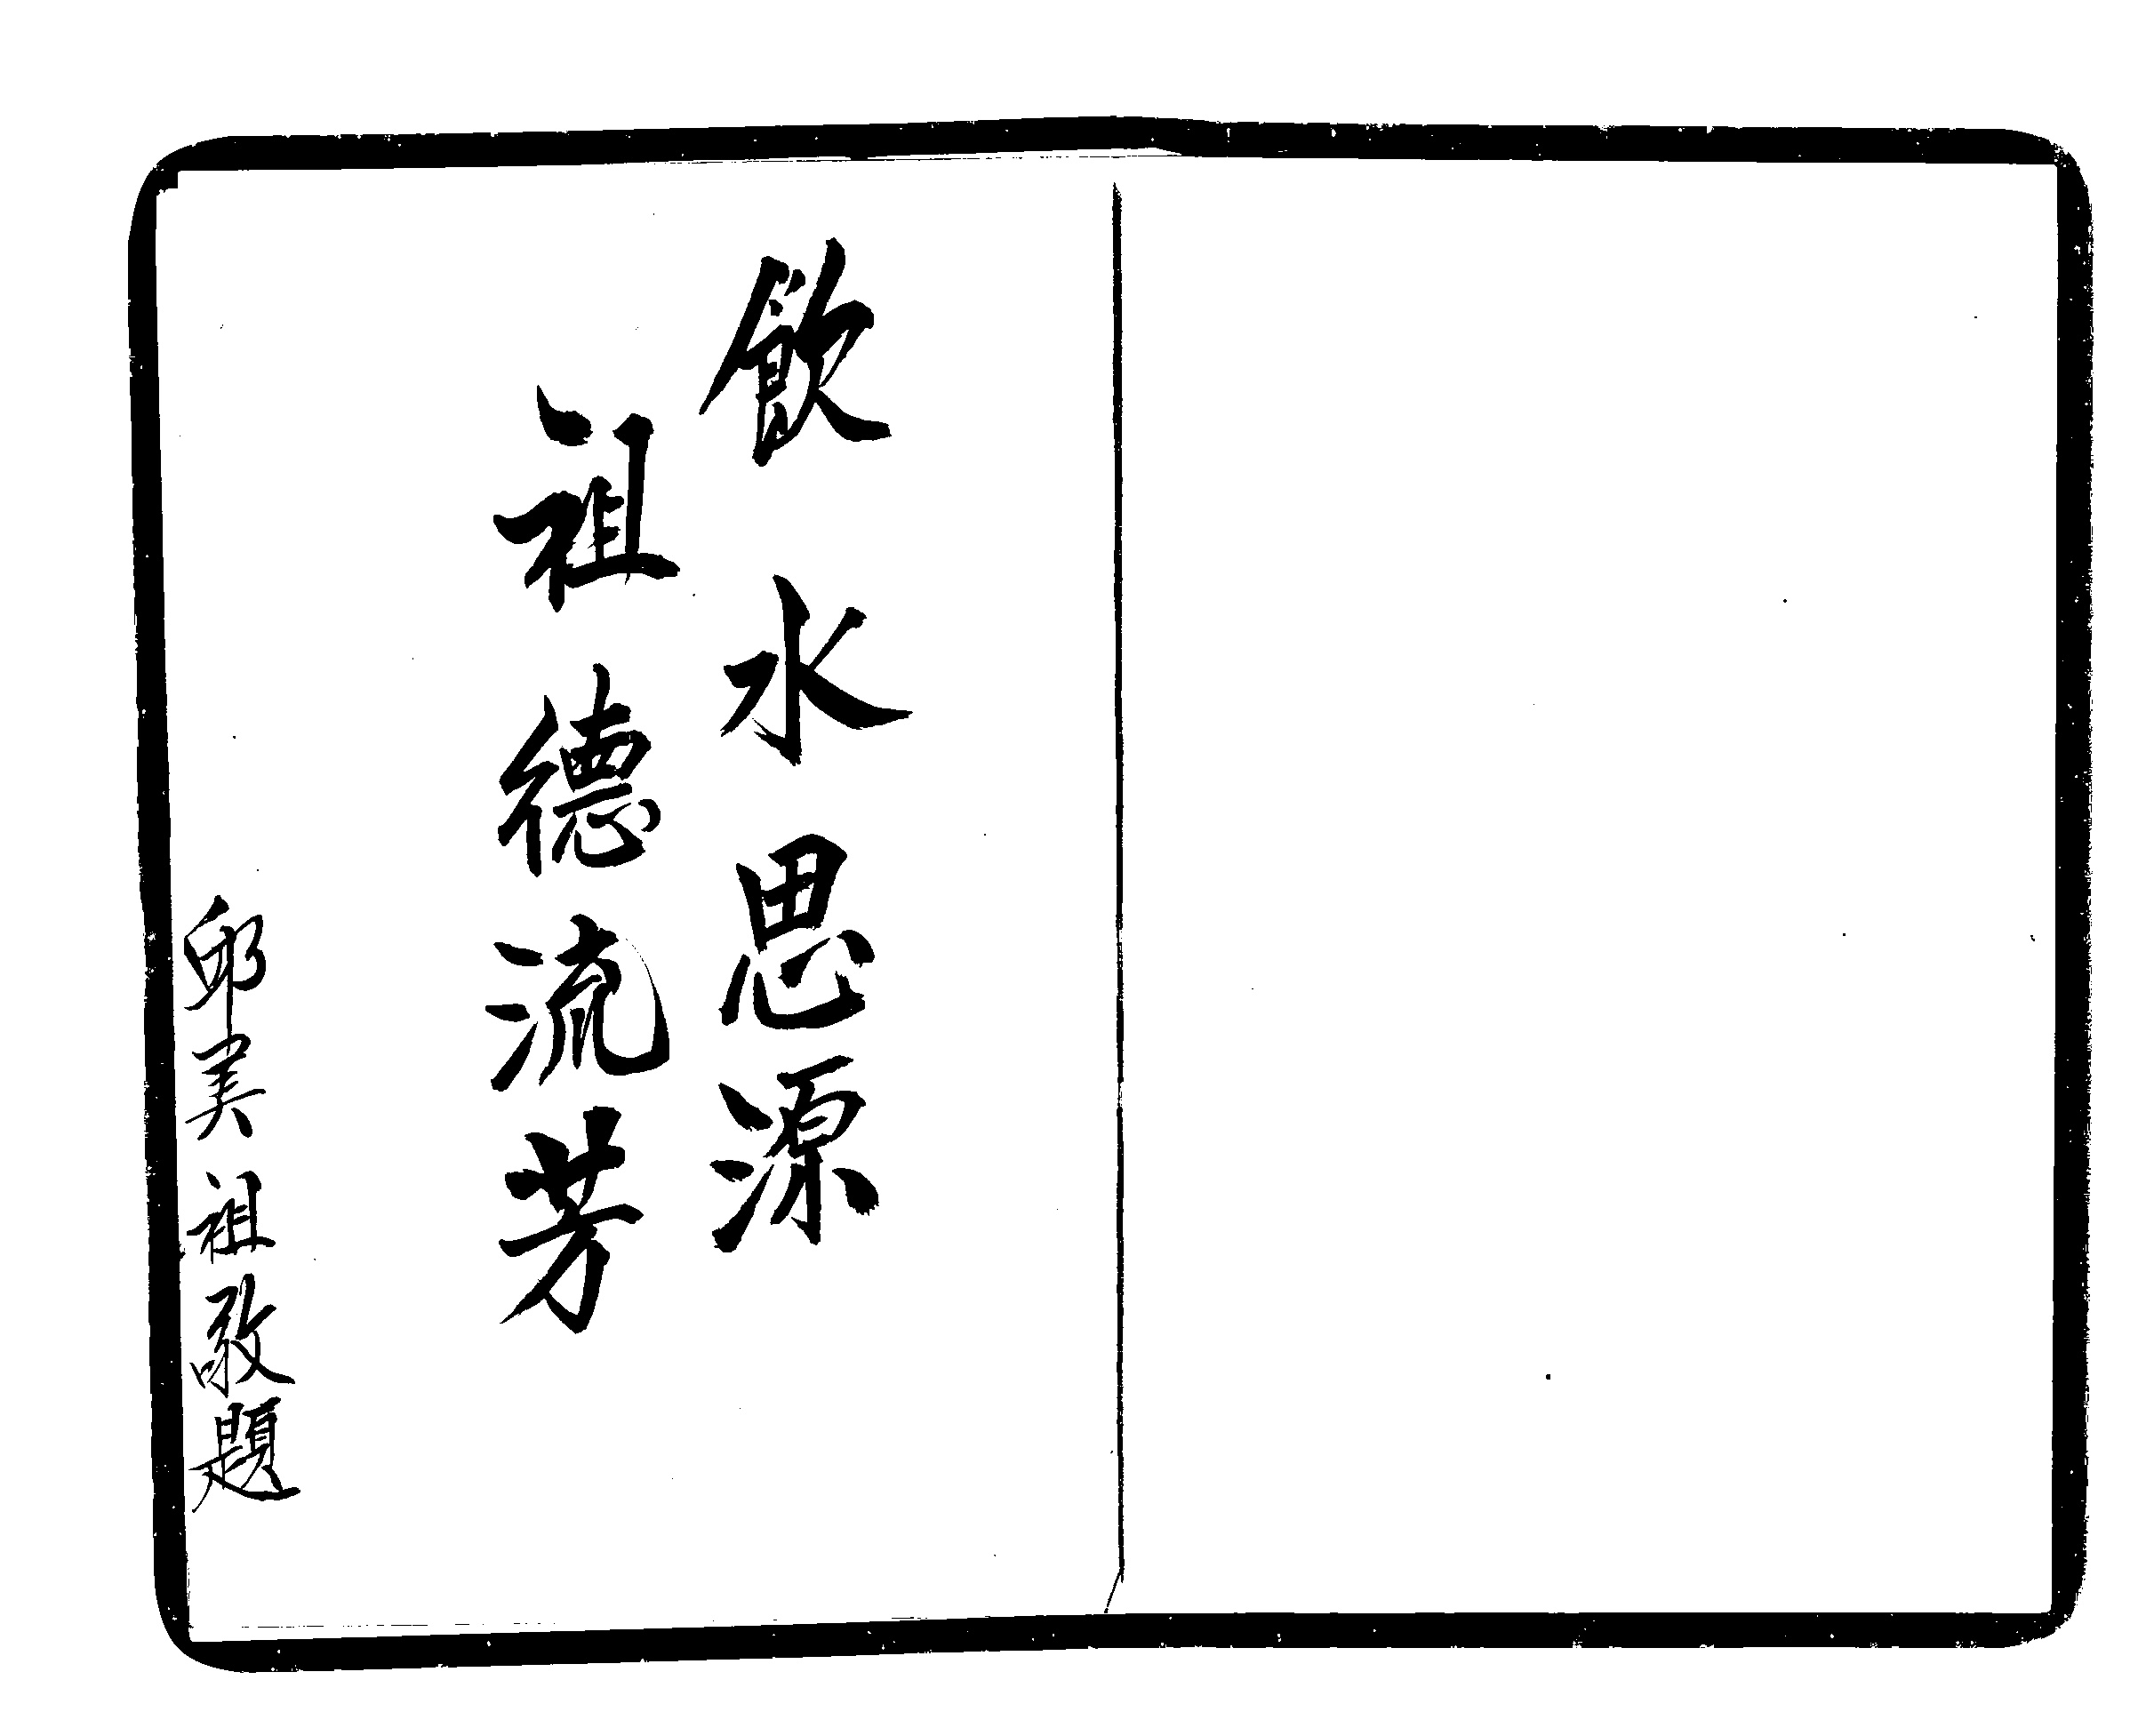 飲水思源
祖德流芳
邱美祖敬題